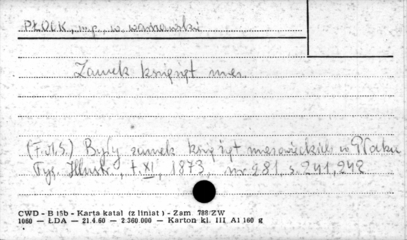 PŁOCK, mp., w warszawski
Zamek książąt maz.
(F.M.S.) Były zamek książąt mazowieckich w Płocku
Tyg. Illustr., t. XI, 1873, nr 281, s. 241, 242
CWD - B 15b - Karta katal (z liniat) - Zam 788/ZW
1060 — ŁDA — 21.4.60 — 2.360.000 — Karton kl. III A1 160 g